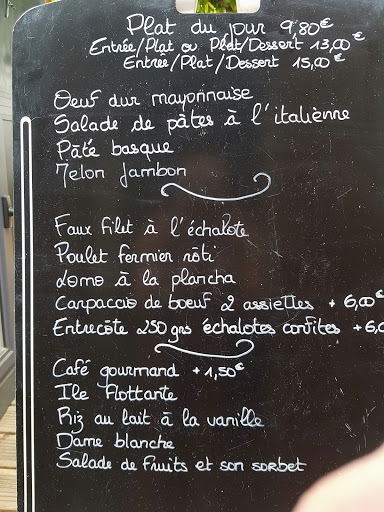 Plat du jour 9,80€
Entrée/Plat ou Plat/Dessert 13,00€
Entrée/Plat/Dessert 15,00€
Oeuf dur mayonnaise
Salade de pâtes à l'italiènne
Pâté basque
Melon Jambon
Faux filet à l'échalote
Poulet fermier rôti
Lomo à la plancha
Carpaccio de boeuf 2 assiettes + 6,00€
Entrecôte 250 grs échalotes confites + 6,0
Café gourmand + 1,50€
Ile flottante
Riz au lait à la vanille
Dame blanche
Salade de fruits et son sorbet